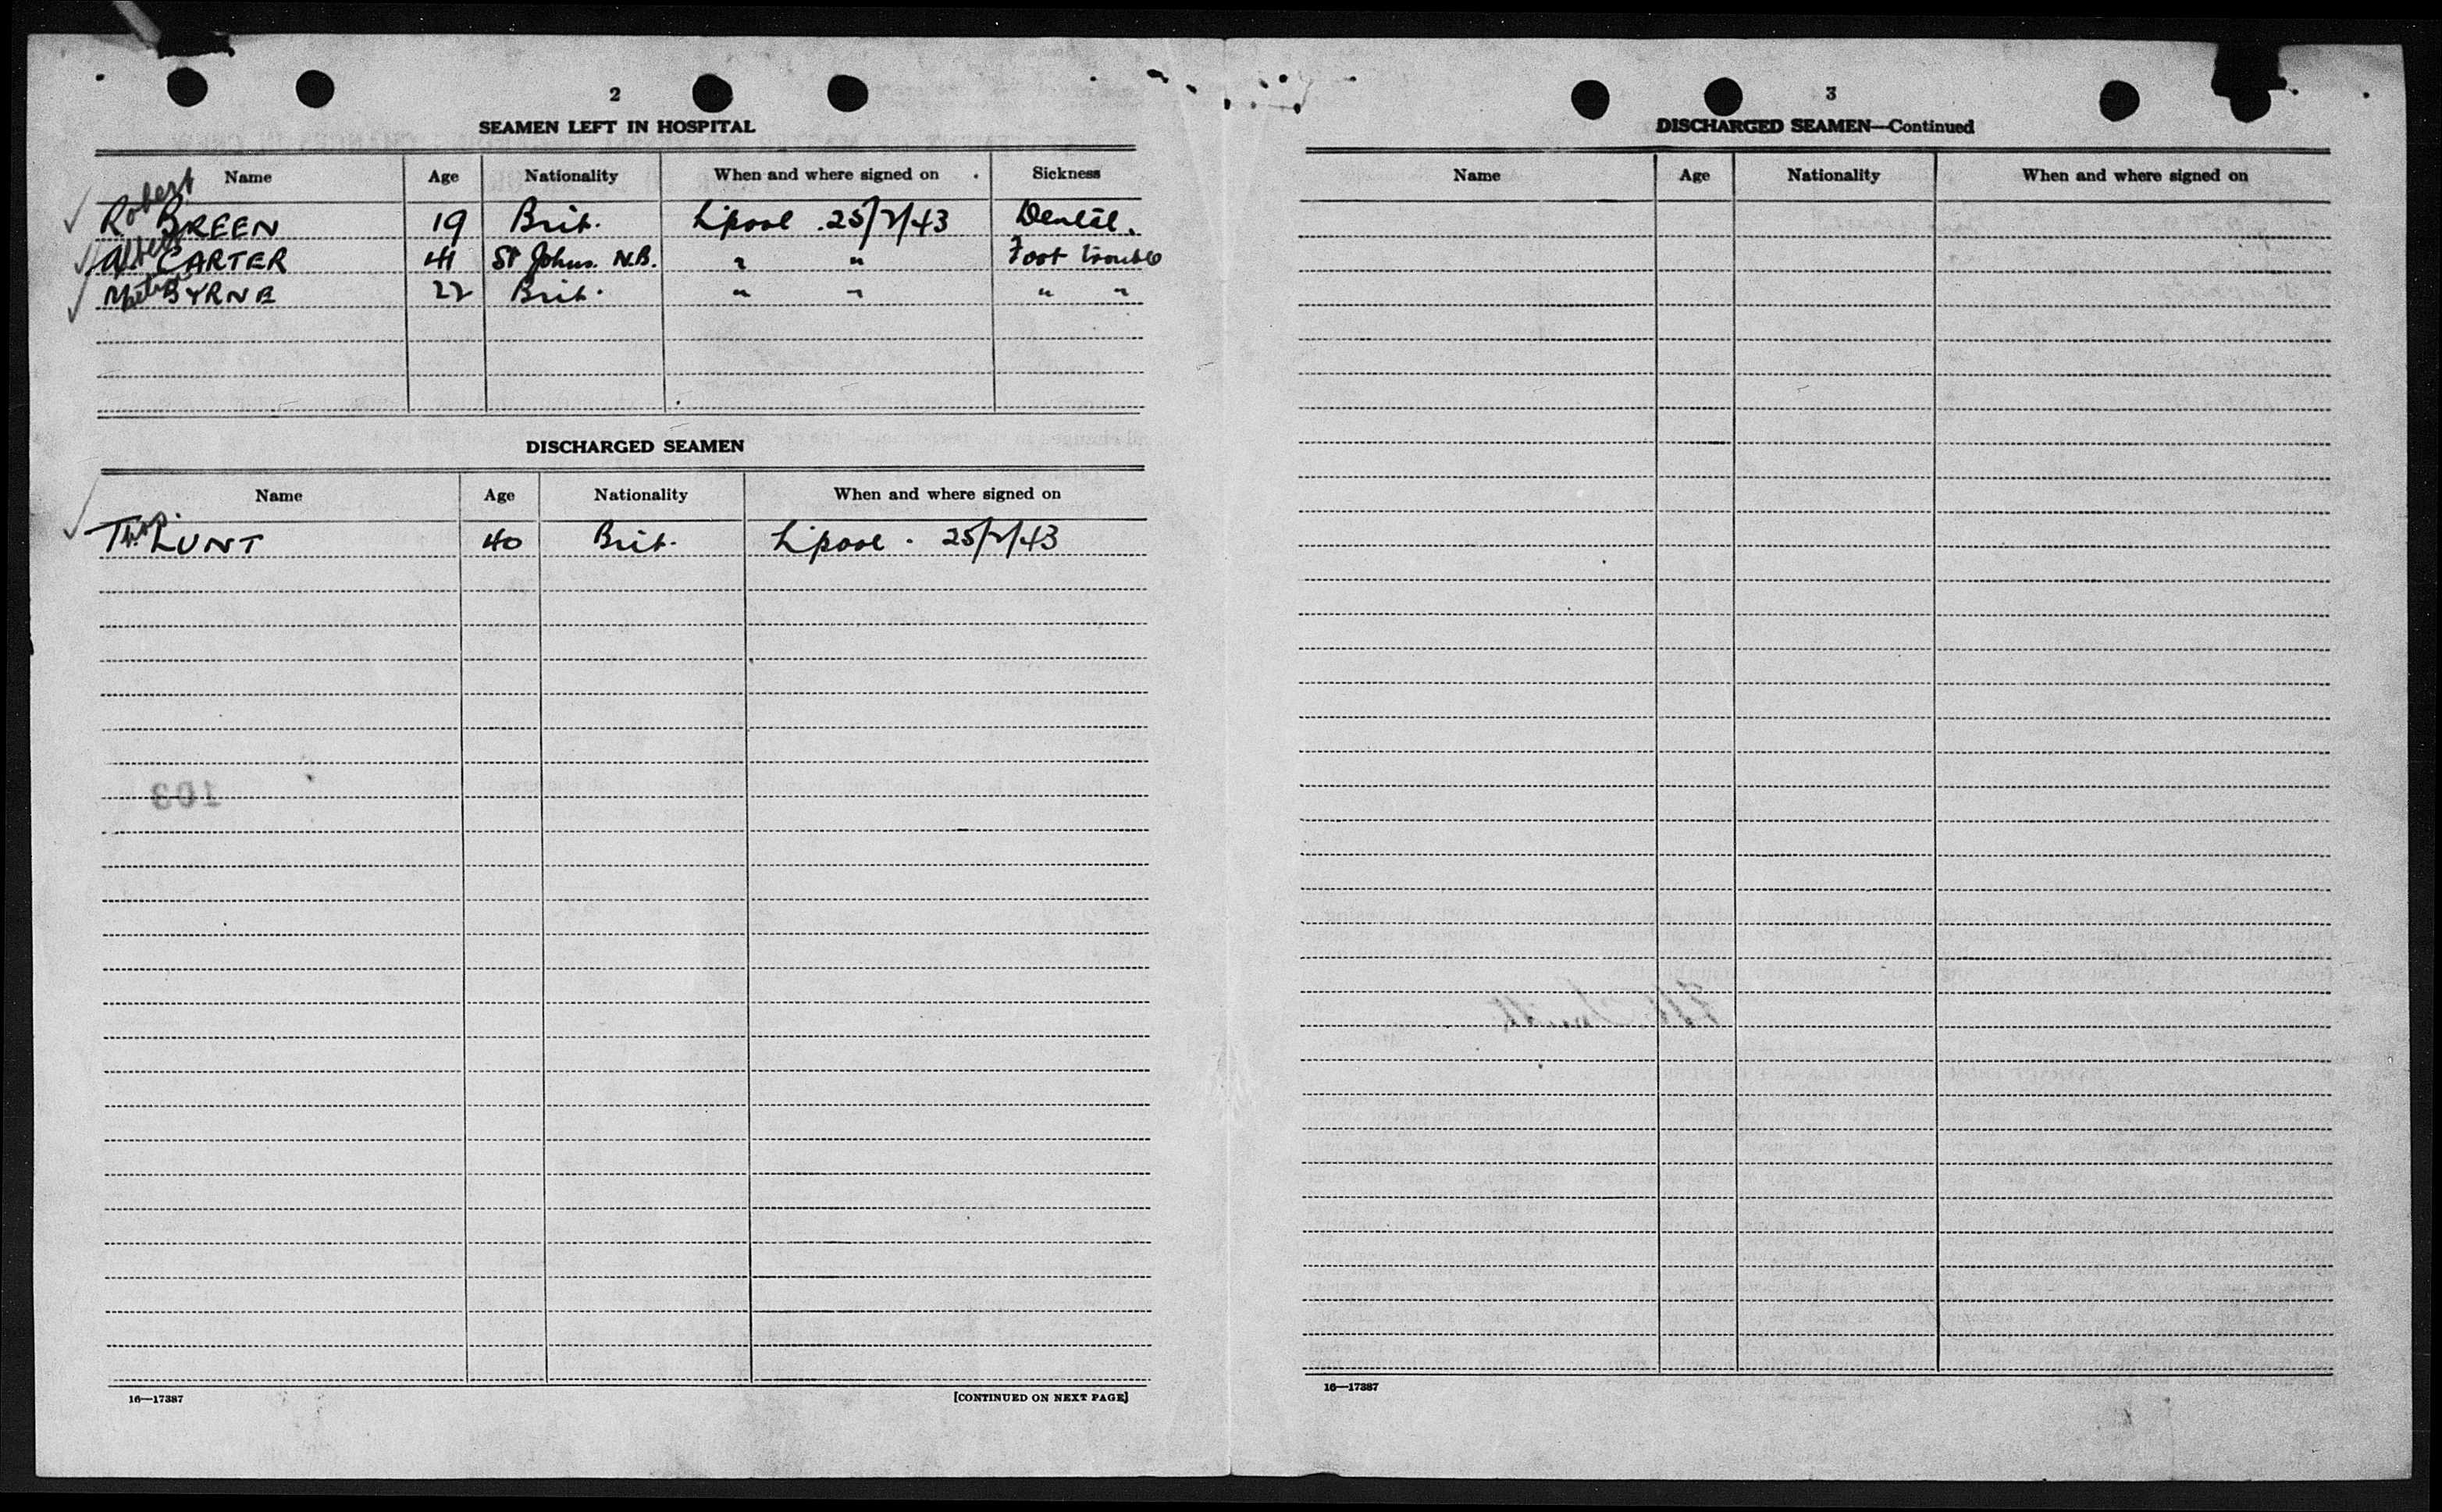 2
SEAMEN LEFT IN HOSPITAL
Name Age Nationality When and where signed on Sickness
Robert BREEN 19 Brit. L'pool. 25/2/43 Dental.
CARTER 41 St Johns. N.B. " " Foot trouble
BYRNE 22 Brit. " " " "
DISCHARGED SEAMEN
Name Age Nationality When and where signed on
Thos. LUNT 40 Brit. L'pool. 25/2/43
103
16—17387 [CONTINUED ON NEXT PAGE]
3
DISCHARGED SEAMEN—Continued
Name Age Nationality When and where signed on
16—17387